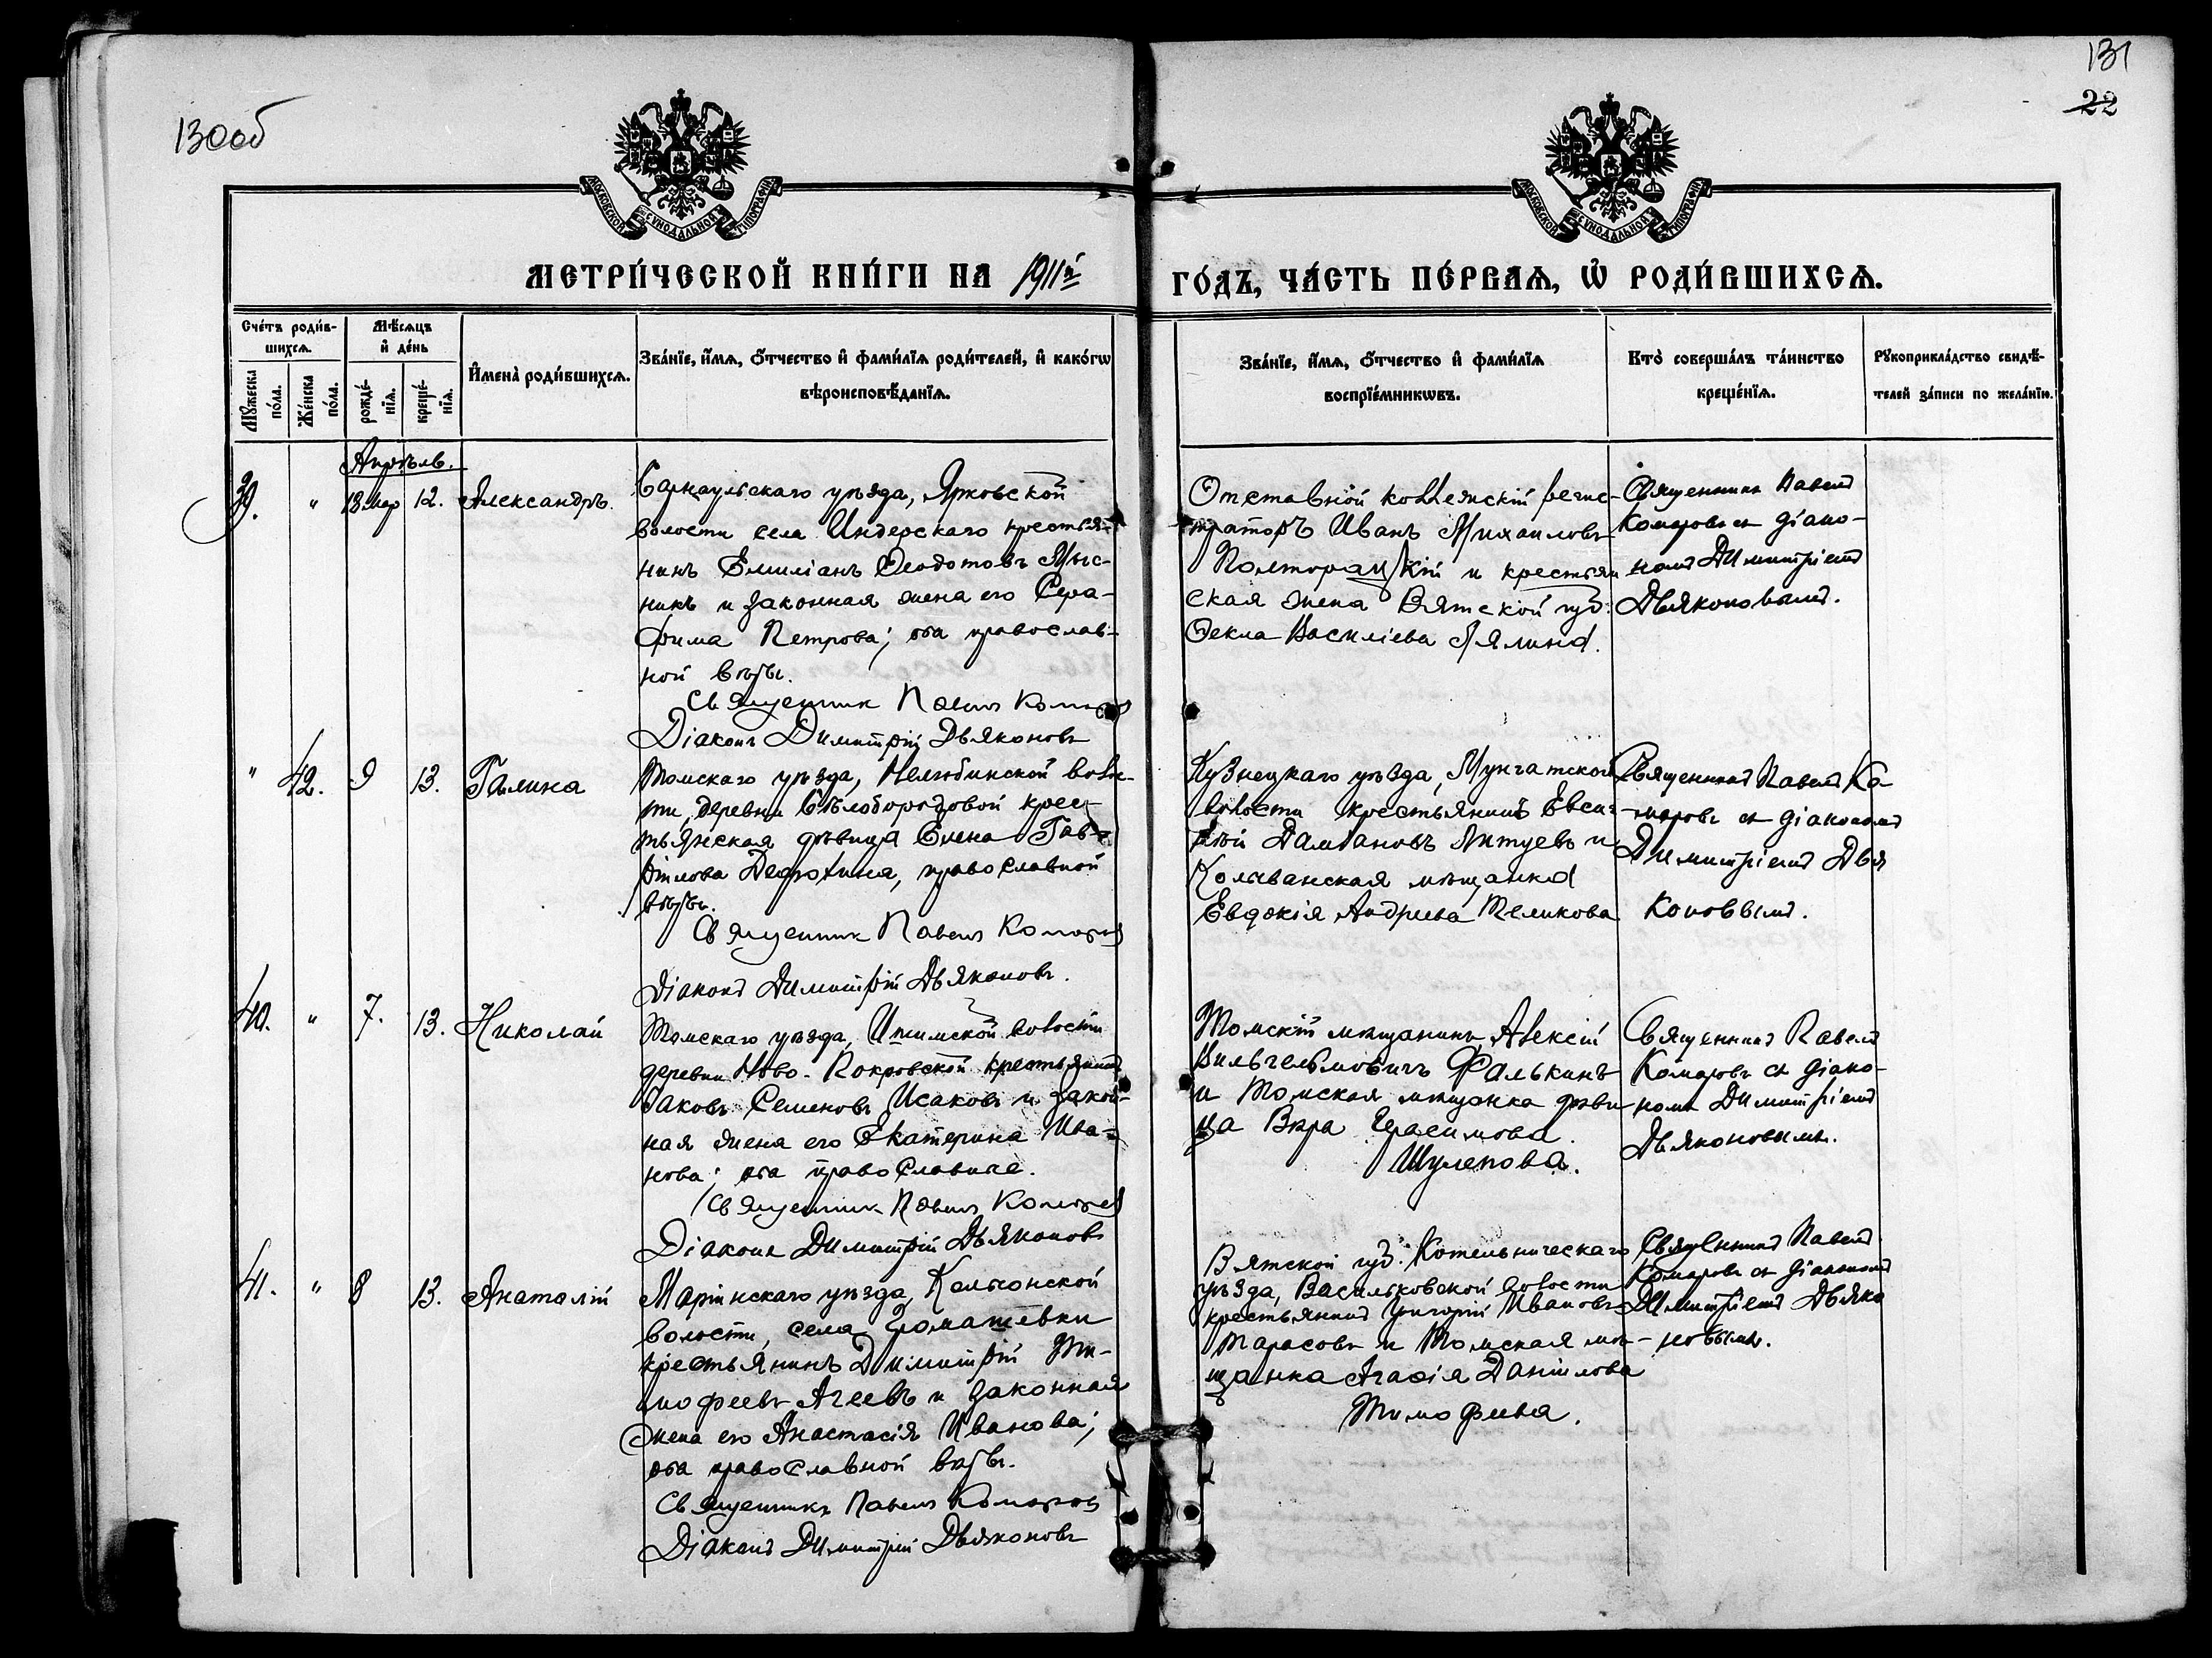 130об
131
22
МОСКОВСКОЙ СѴНОДАЛЬНОЙ ТИПОГРАФІИ
МОСКОВСКОЙ СѴНОДАЛЬНОЙ ТИПОГРАФІИ
МЕТРИ́ЧЕСКОЙ КНИ́ГИ НА 1911й
ГО́ДЪ, ЧА́СТЬ ПЕ́РВАѦ, Ѡ҆ РОДИ́ВШИХСѦ.
Сче́тъ роди́в-
шихсѧ.
Мѹ́жеска по́ла.
Же́нска по́ла.
Мѣ́сѧцъ
и҆ де́нь
рожде́-
нїѧ.
креще́-
нїѧ.
И҆мена̀ роди́вшихсѧ.
Зва́нїе, и҆́мѧ, ѻ҆́тчество и҆ фами́лїѧ роди́телей, и҆ како́гѡ
вѣроисповѣ́данїѧ.
Зва́нїе, и҆́мѧ, ѻ҆́тчество и҆ фами́лїѧ
воспрїе́мникѡвъ.
Кто̀ соверша́лъ та́инство
креще́нїѧ.
Рѹкоприкла́дство свидѣ́-
телей за́писи по жела́нїю.
Апрѣль.
39. " 13 мар 12. Александръ.
Барнаульскаго уѣзда, Ярковской
волости села Индерскаго крестья-
нинъ Емиліанъ Ѳеодотовъ Мыс-
никъ и законная жена его Сера-
фима Петрова; оба православ-
ной вѣры.
Священник Павелъ Комаровъ
Діаконъ Димитрій Дьяконовъ
Отставной коллежскій регис-
траторъ Иванъ Михаиловъ
Полторацкій и крестьян
ская жена Вятской губ.
Ѳекла Василіева Лялина.
Священникъ Павелъ
Комаровъ съ діако-
номъ Димитріемъ
Дьяконовымъ.
" 42. 9 13. Галина
Томскаго уѣзда, Нелюбинской волос-
ти, деревни Бѣлобородовой крес-
тьянская дѣвица Елена Гав-
ріилова, православной
вѣры.
Священник Павелъ Комаровъ
Діаконъ Димитрій Дьяконовъ.
Кузнецкаго уѣзда, Мунгатской
волости крестьянинъ Евси-
гній Даміановъ и
Колыванская мѣщанка
Евдокія Андреева Теликова
Священникъ Павелъ Ко-
маровъ съ діакономъ
Димитріемъ Дья
коновымъ.
40. " 7. 13. Николай
Томскаго уѣзда, Ишимской волости
деревни Ново-Покровской крестьянинъ
Іаковъ Семеновъ Исаковъ и закон-
ная жена его Екатерина Ива-
нова; оба православные.
Священник Павелъ Комаровъ
Діаконъ Димитрій Дьяконовъ
Томскій мѣщанинъ Алексій
Вильгельмовичъ Фалькинъ
и Томская мѣщанка дѣви
ца Вѣра Герасимова
Шулепова.
Священникъ Павелъ
Комаровъ съ діако-
номъ Димитріемъ
Дьяконовымъ.
41. " 8 13. Анатолій
Маріинскаго уѣзда, Кольонской
волости, села Громашевки
крестьянинъ Димитрій Ти-
мофеевъ Агеевъ и законная
жена его Анастасія Иванова;
оба православной вѣры.
Священникъ Павелъ Комаровъ
Діаконъ Димитрій Дьяконовъ
Вятской губ. Котельническаго
уѣзда, Васильковской волости
крестьянинъ Григорій Ивановъ
Тарасовъ и Томская мѣ-
щанка Агаѳія Даніилова
Тимофеева.
Священникъ Павелъ
Комаровъ съ діакономъ
Димитріемъ Дьяко
новымъ.